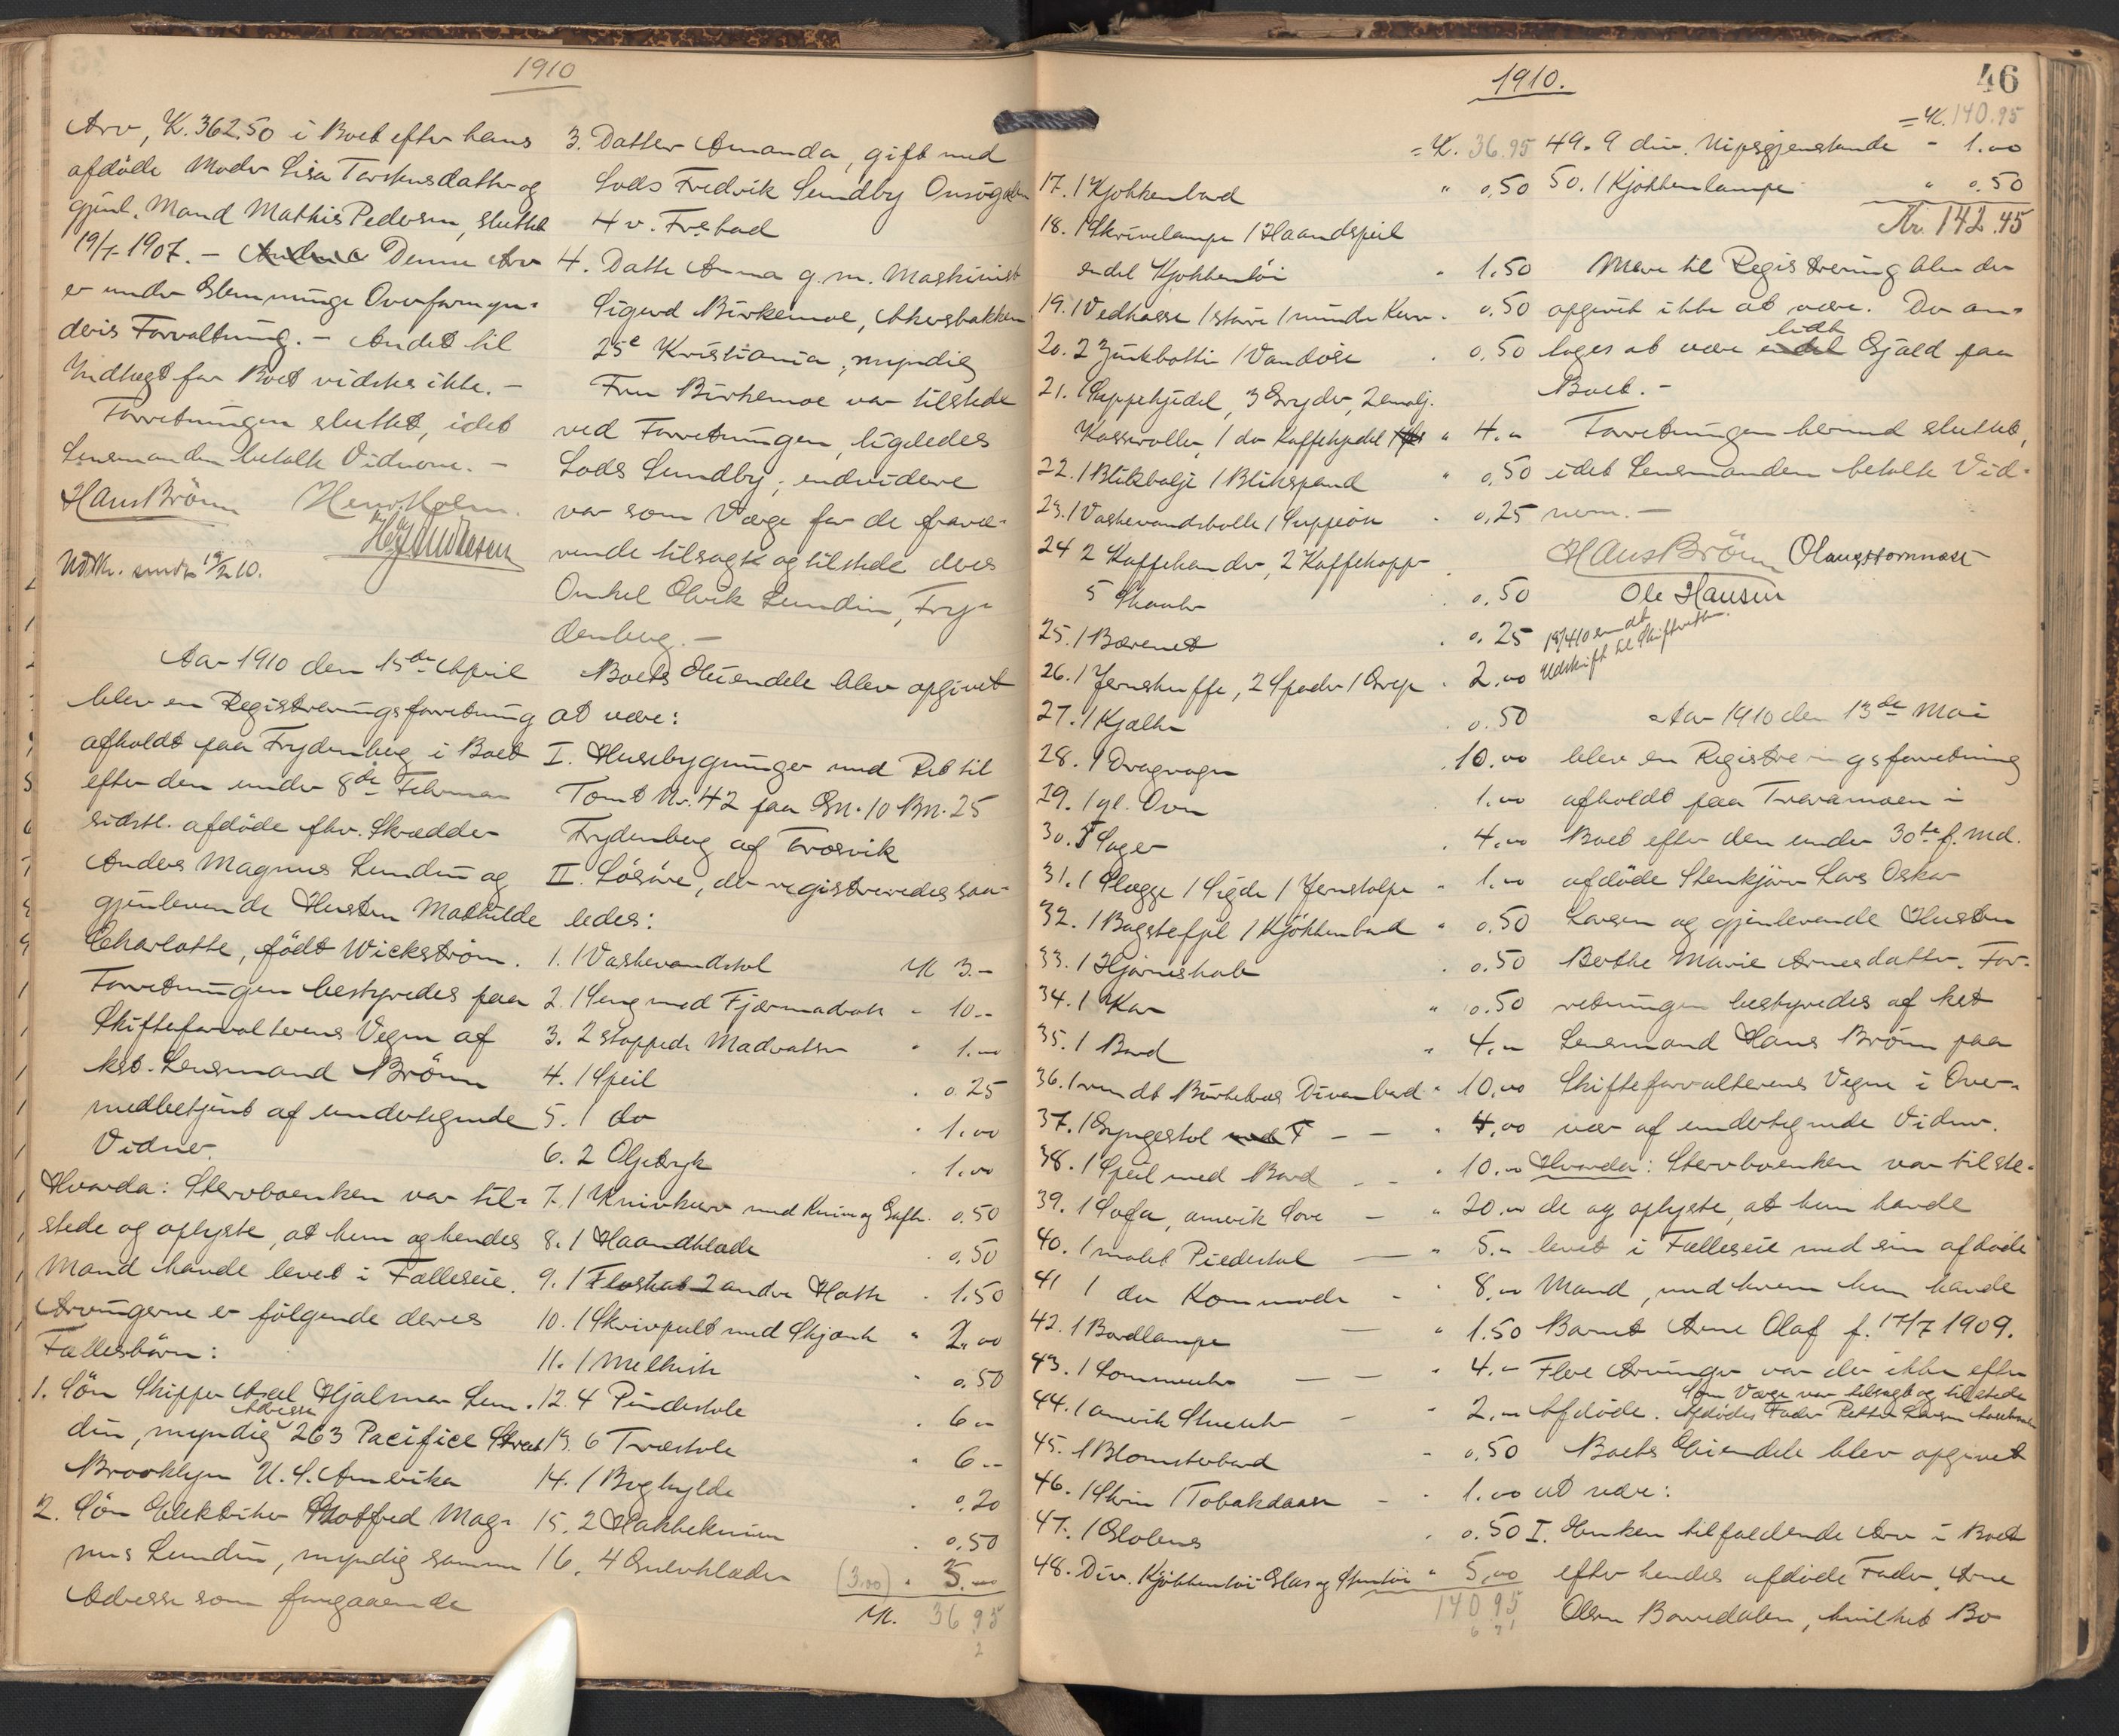 1910
Arv, K. 362.50 i Boet efter hans
afdöde Moder Lisa Torstensdatter og
gjenl. Mand Mathis Pedersen, sluttet
19/4 1907. - Denne Arv
er under Glemminge Overformyn-
deris Forvaltning. - Andet til
Indtægt for Boet vidstes ikke. -
Forretningen sluttet, idet
Lensmanden betalte Vidnerne. -
Hans Brönn Henr Holm.
H. J. Andersen
Udskr. sendt 19/2 10.
Aar 1910 den 15de April
blev en Registreringsforretning
afholdt paa Frydenberg i Boet
efter den under 8de Februar
sidstl. afdöde fhv. Skrædder
Anders Magnus Lundin og
gjenlevende Hustru Mathilde
Charlotte, födt Wickström.
Forretningen bestyredes paa
Skifteforvalterens Vegne af
kst. Lensmand Brönn
medbetjent af undertegnede
Vidner.
Hvorda: Stervboenken var til-
stede og oplyste, at hun og hendes
Mand havde levet i Fælleseie.
Arvingerne er følgende deres
Fællesbörn:
1. Sön Skipper Axel Hjalmar Lun-
din, myndig Adresse 263 Pacifice Street
Brooklyn U. S. Amerika
2. Sön Elektriker Gotfred Mag-
nus Lundin, myndig samme
Adresse som foregaaende
3. Datter Amanda, gift med
Lods Fredrik Sundby Onsögaden
4 v. Fr.stad
4. Datter Anna g. m. Maskinist
Sigurd Birkemoe, Akersbakken
25e Kristiania, myndig
Fru Birkemoe var tilstede
ved Forretningen, ligeledes
Lods Sundby; endvidere
var som Værge for de fravæ-
rende tilsagt og tilstede deres
Onkel Olrik Lundin, Fry-
denberg. -
Boets Eiendele blev opgivet
at være:
I. Husebygninger med Ret til
Tomt No. 42 paa Gn. 10 Bn. 25
Frydenberg af Trosvik
II. Lösöre, der registreredes saa-
ledes:
1. 1 Vaskevandstol K 3.-
2. 1 Seng med Fjærmadrats " 10.-
3. 2 stoppede Madratser " 1.00
4. 1 Speil " 0.25
5. 1 do " 1.00
6. 2 Oljetryk " 1.00
7. 1 Knivkurv med Kniv og Gafler 0.50
8. 1 Haandklæde " 0.50
9. 1 Floshat 2 andre Hatte " 1.50
10. 1 Skrivpult med Skjænk " 2.00
11. 1 Melkisk " 0.50
12. 4 Pindestole " 6.-
13. 6 Træstole " 6.-
14. 1 Boghylde " 0.20
15. 2 Hakkeknive " 0.50
16. 4 Gulvklæder (3.00) " 3.00
K. 36.95
1910.
46
= K. 36.95
17. 1 Kjøkkenbord " 0.50
18. 1 Skrivelampe 1 Haandspeil
endel Kjøkkentöi " 1.50
19. 1 Vedkasse 1 större 1 mindre Kurv " 0.50
20. 2 Zinkbötter 1 Vandöse " 0.50
21. 1 Suppekjedel, 3 Gryder, 2 emalj.
Kasseroller, 1 do Kaffekjedel " 4.-
22. 1 Blikbalje 1 Blikspand " 0.50
23. 1 Vaskevandsbolle 1 " 0.25
24 2 Kaffekander, 2 Kaffekopper
5 Skaaler " 0.50
25. 1 Børenet " 0.25
26. 1 Jernskuffe, 2 Spader 1 Grep " 2.00
27. 1 Kjælke " 0.50
28. 1 Dragvogn " 10.00
29. 1 gl. Ovn " 1.00
30. 5 Sager " 4.00
31. 1 Slægge 1 Sigde 1 Jernstolpe " 1.00
32. 1 Bagstefjel 1 Kjøkkenbord " 0.50
33. 1 Hjörneskab " 0.50
34. 1 Kar " 0.50
35. 1 Bord " 4.-
36. 1 rundt Birketræs Divanbord " 10.00
37. 1 Gyngestol " 4.00
38. 1 Speil med Bord " 10.00
39. 1 Sofa, amerik Love " 20.00
40. 1 malet Piedestal " 5.-
41 1 do Kommode " 8.00
42. 1 Bordlampe " 1.50
43. 1 Lommeuhr " 4.-
44. 1 amerik Stueuhr " 2.00
45. 1 Blomsterbord " 0.50
46. 1 Skrin 1 Tobakdaase " 1.00
47. 1 Globus " 0.50
48. Div. Kjøkkentöi Glas og Stentöi " 5.00
140 95
= K. 140.95
49. 9 div. Nipsgjenstande - 1.00
50. 1 Kjøkkenlampe " 0.50
Kr. 142.45
Mere til Registrering blev der
opgivet ikke at være. Der an-
toges at være lidt Gjæld paa
Boet. -
Forretningen hermed sluttet,
idet Lensmanden betalte Vid-
nerne. -
Hans Brönn Olaus Hornnæss
Ole Hansen
18/4 10 sendt
Udskrift til Skifteretten.
Aar 1910 den 13de Mai
blev en Registreringsforretning
afholdt paa Traramoen i
Boet efter den under 30te f. Md.
afdöde Stenkjörer Lars Oskar
Larsen og gjenlevende Hustru
Berthe Marie Arnesdatter. For-
retningen bestyredes af kst
Lensmand Hans Brönn paa
Skifteforvalterens Vegne i Over-
vær af undertegnede Vidner.
Hvorda: Stervboenken var tilste-
de og oplyste, at hun havde
levet i Fælleseie med sin afdöde
Mand, med hvem hun havde
Barnet Arne Olaf f. 17/7 1909.
Flere Arvinger var der ikke efter
Som Værge var tilsagt og tilstede
Afdöde. Afdödes Fader Petter Larsen
Boets Eiendele blev opgivet
at være:
I. Enken tilfaldende Arv i Boet
efter hendes afdöde Fader, Arne
Olsen Borredalen, hvilket Bo